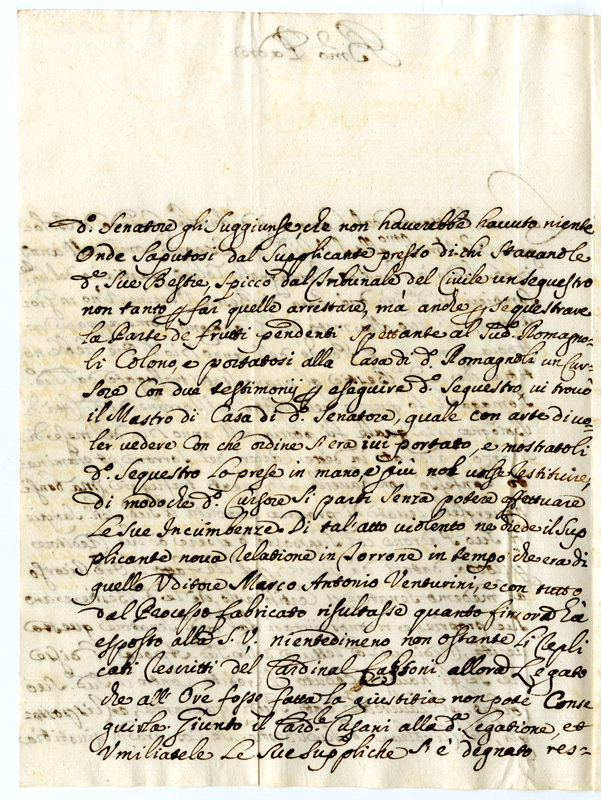 d.º Senatore gli Suggiunse, che non haverebbe havuto niente
Onde Saputosi dal Supplicante presso di chi Stavano le
d.e Sue Bestie, spiccò dal Tribunale del Civile un sequestro
non tanto p far quelle arrestare, mà anche p sequestrare
la Parte de frutti pendenti Spettante al Sud.º Romagno-
li Colono, e portatosi alla Casa di d.º Romagnoli un Cur-
sore Con due testimonij p eseguire d.º Sequestro, vi trovò
il Mastro di Casa di d.º Senatore, quale con arte di vo-
ler vedere Con che ordine s'era ivi portato, e mostratoli
d.º Sequestro lo prese in mano, e più non volse restituire,
di modo che d.º Cursore Si partì Senza potere effettuare
Le Sue Incumbenze. Di tal'atto violento ne diede il Sup
plicante nova Relatione in Torrone in tempo che era di
quello Uditore Marco Antonio Venturini, e con tutto
dal Processo fabricato risultasse quanto fin'ora hà
esposto alla S. V., nientedimeno non ostante Li Repli
cati Rescritti del Cardinal allora Legato
che all' Ore fosse fatta la giustitia non potè Conse
guirla. Giunto il Card.le Cusani alla d.ª Legatione, et
Umiliatele Le Sue Suppliche Si è degnato res-